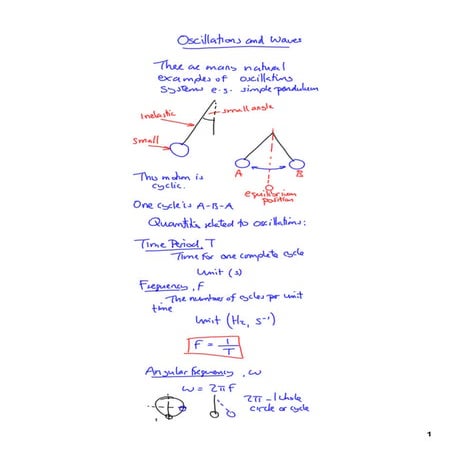 Oscillations and Waves
There are many natural
examples of oscillating
systems e.g. simple pendulum
small angle
inelastic
small
A
B
This motion is
cyclic.
equilibrium
position
One cycle is A-B-A
Quantities related to oscillations:
Time Period, T
Time for one complete cycle
Unit (s)
Frequency, F
The number of cycles per unit
time
Unit (Hz, s⁻¹)
F = 1/T
Angular Frequency, ω
ω = 2πF
2π - 1 whole
circle or cycle
1